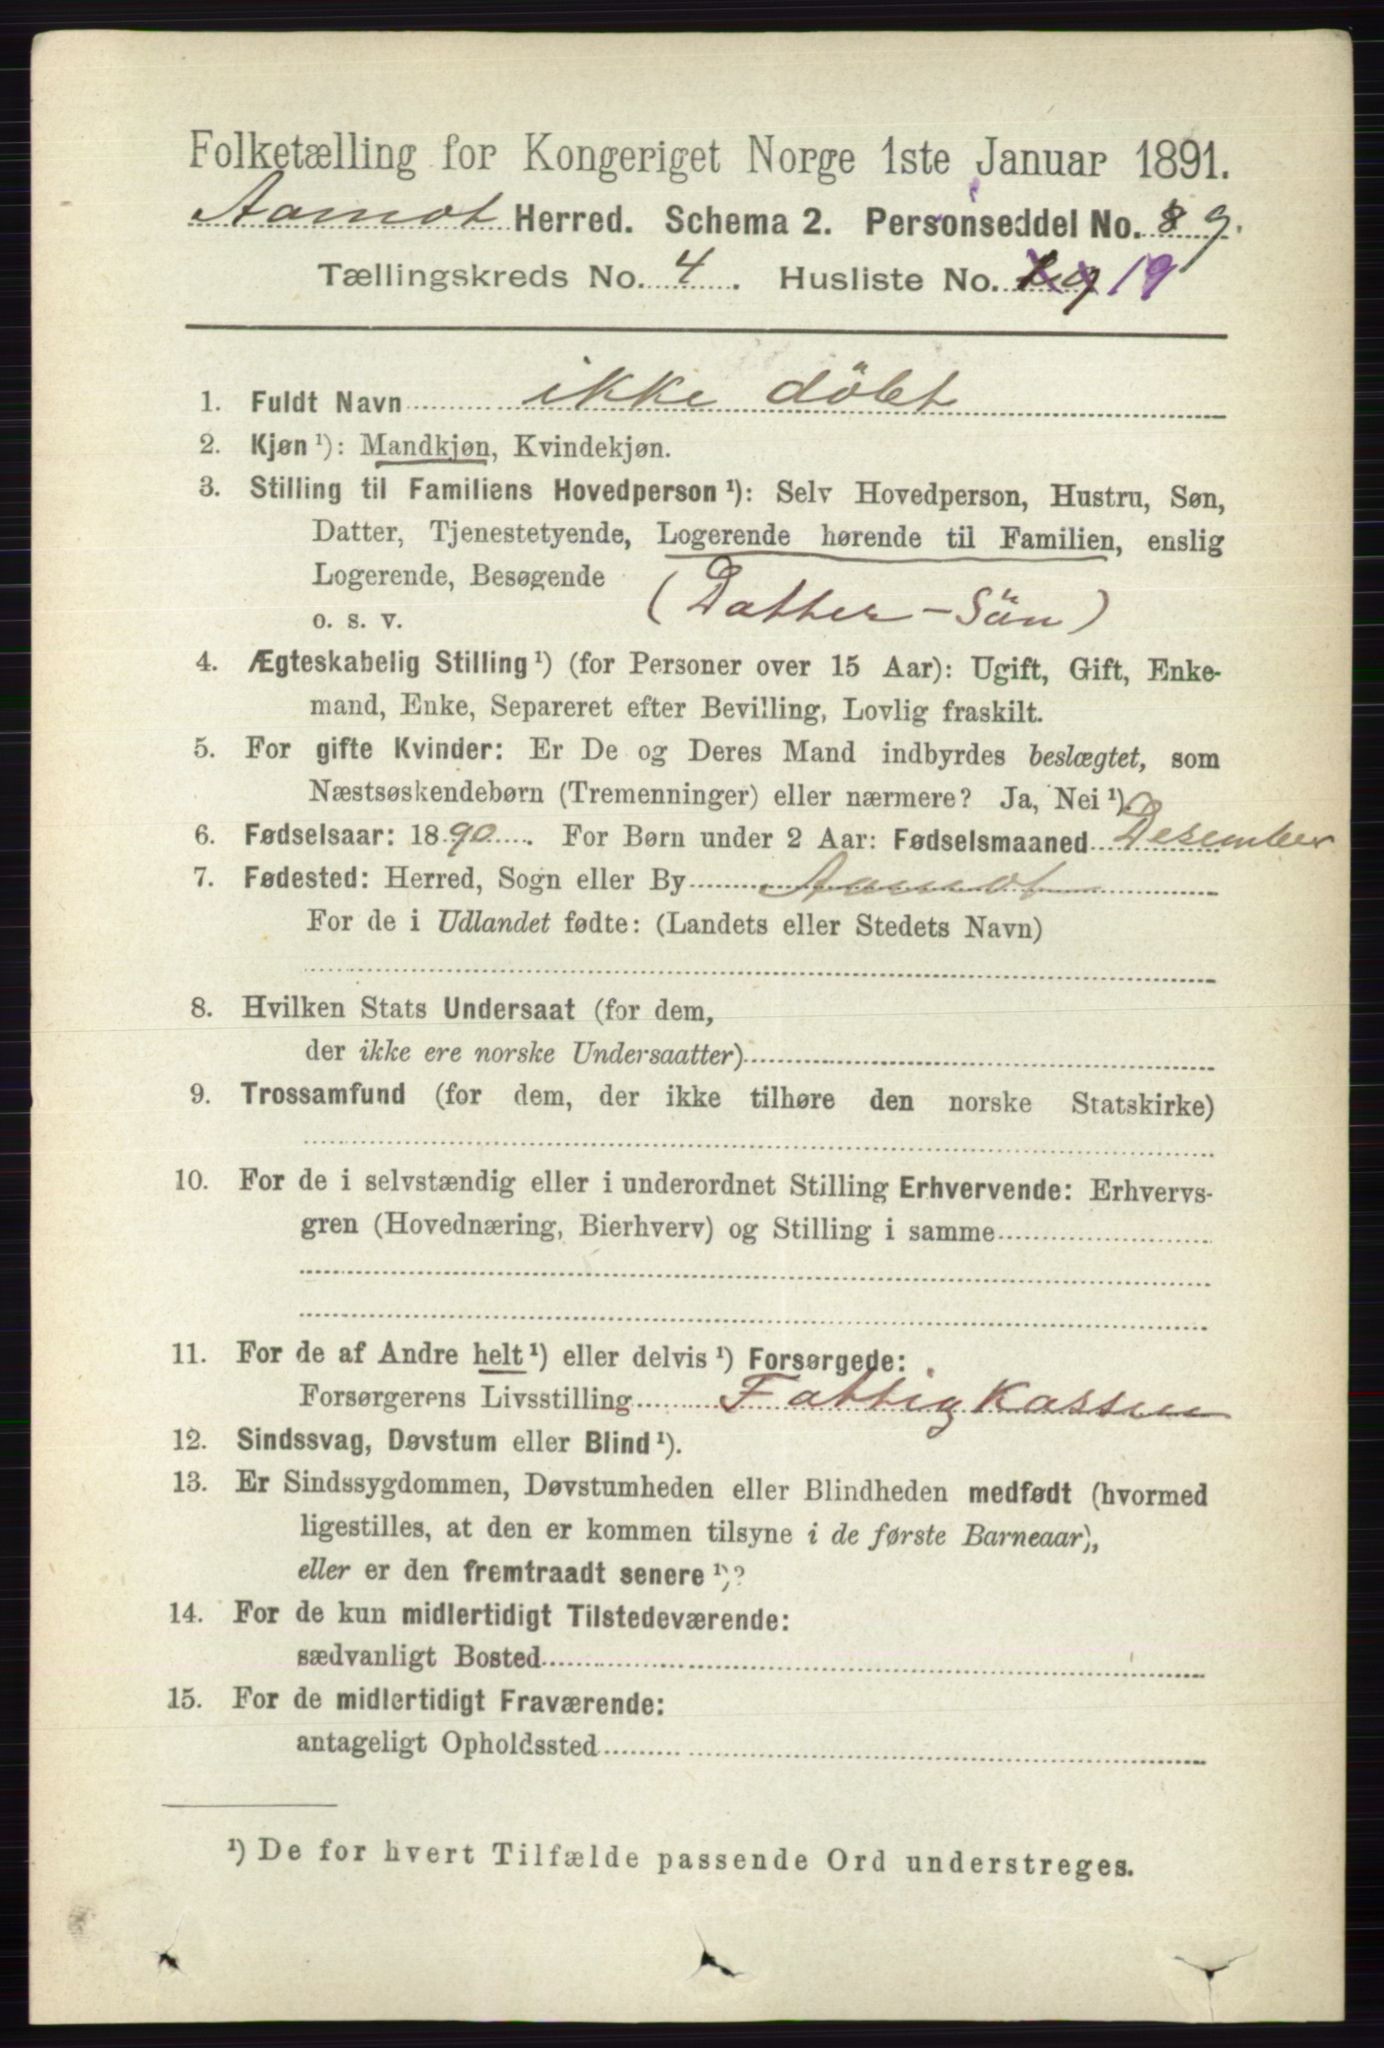 Folketælling for Kongeriget Norge 1ste Januar 1891.
Aamot Herred. Schema 2. Personseddel No. 8 9.
Tællingskreds No. 4. Husliste No. 19
1. Fuldt Navn ikke döbt
2. Kjøn ¹): Mandkjøn, Kvindekjøn.
3. Stilling til Familiens Hovedperson ¹): Selv Hovedperson, Hustru, Søn,
Datter, Tjenestetyende, Logerende hørende til Familien, enslig
Logerende, Besøgende
o. s. v. (Datter-Sön)
4. Ægteskabelig Stilling ¹) (for Personer over 15 Aar): Ugift, Gift, Enke-
mand, Enke, Separeret efter Bevilling, Lovlig fraskilt.
5. For gifte Kvinder: Er De og Deres Mand indbyrdes beslægtet, som
Næstsøskendebørn (Tremenninger) eller nærmere? Ja, Nei ¹).
6. Fødselsaar: 1890. For Børn under 2 Aar: Fødselsmaaned Desember
7. Fødested: Herred, Sogn eller By Aamot
For de i Udlandet fødte: (Landets eller Stedets Navn)
8. Hvilken Stats Undersaat (for dem,
der ikke ere norske Undersaatter)
9. Trossamfund (for dem, der ikke tilhøre den norske Statskirke)
10. For de i selvstændig eller i underordnet Stilling Erhvervende: Erhvervs-
gren (Hovednæring, Bierhverv) og Stilling i samme
11. For de af Andre helt ¹) eller delvis ¹) Forsørgede:
Forsørgerens Livsstilling Fattigkassen
12. Sindssvag, Døvstum eller Blind ¹).
13. Er Sindssygdommen, Døvstumheden eller Blindheden medfødt (hvormed
ligestilles, at den er kommen tilsyne i de første Barneaar),
eller er den fremtraadt senere ¹)?
14. For de kun midlertidigt Tilstedeværende:
sædvanligt Bosted
15. For de midlertidigt Fraværende:
antageligt Opholdssted
¹) De for hvert Tilfælde passende Ord understreges.